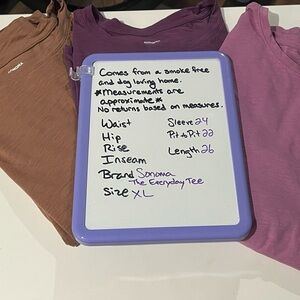 Comes from a smoke free
and dog loving home.
*Measurements are
approximate*
No returns based on measures.
Waist Sleeve 24
Hip Pit to Pit 22
Rise Length 26
Inseam
Brand Sonoma
The Everyday Tee
Size XL